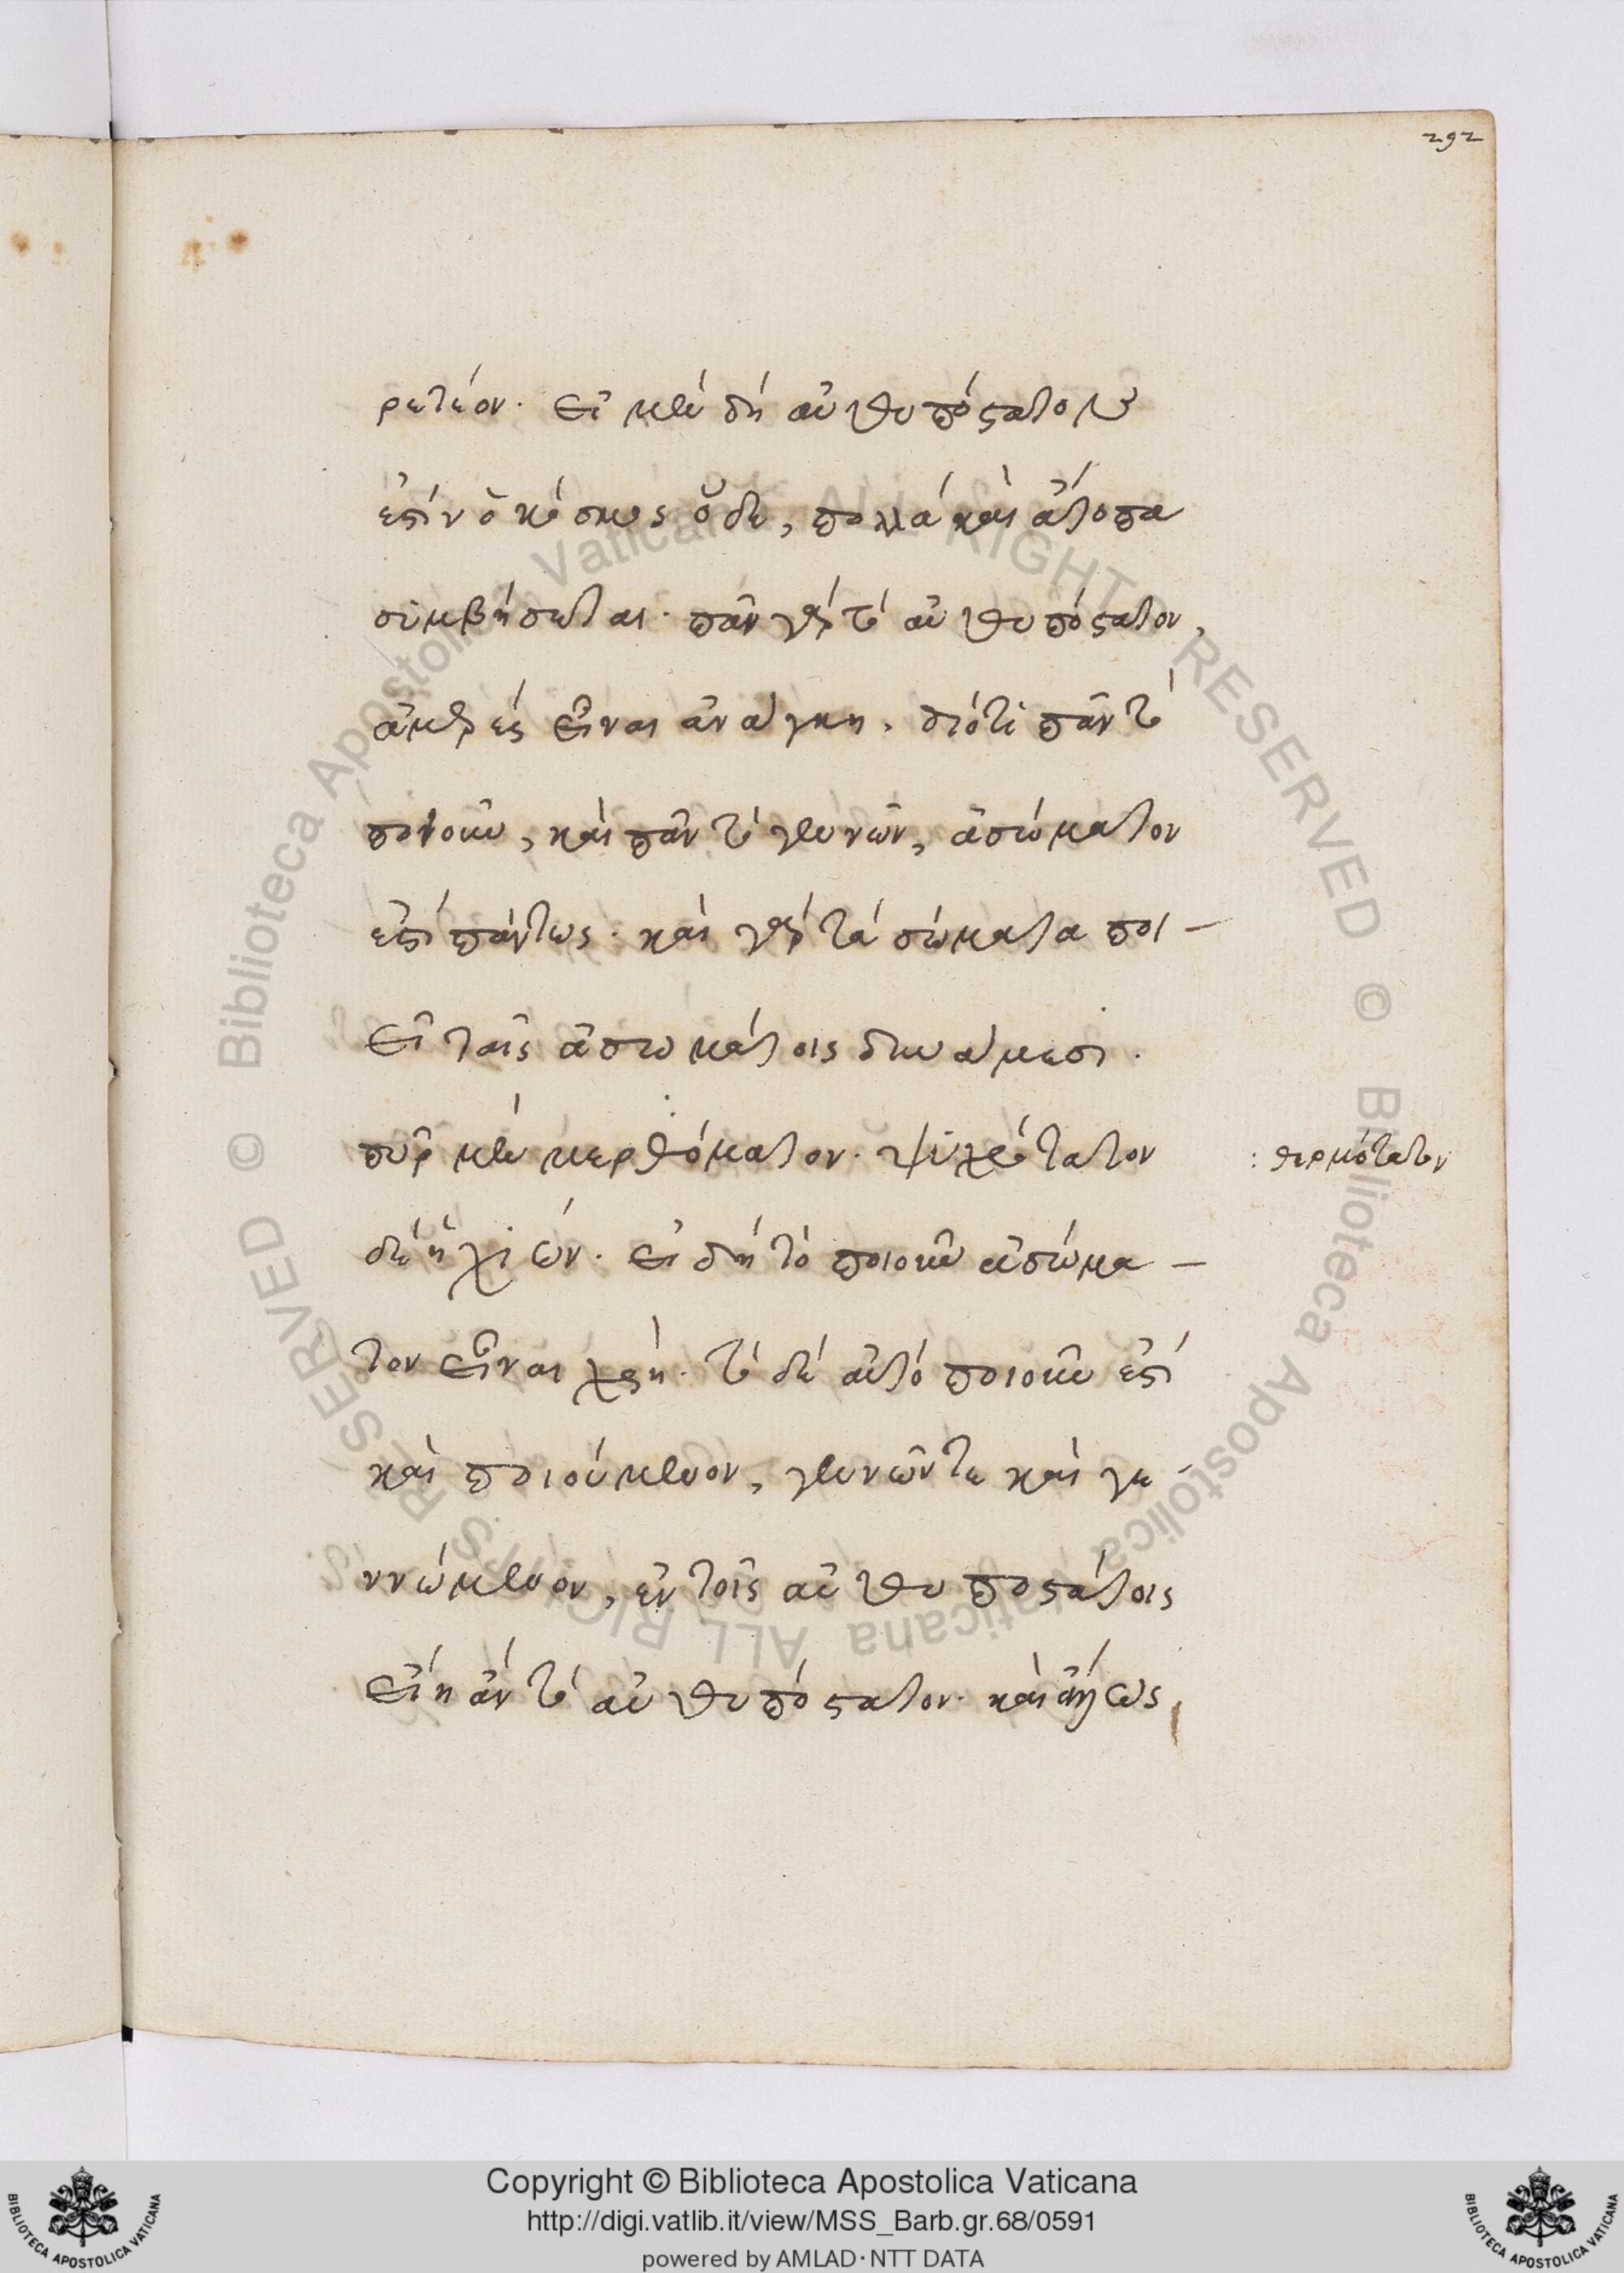 292
ρετέον. εἰ μὲν δὴ αὐθυπόστατον
ἐστὶν ὁ κόσμος ὅδε, πολλὰ καὶ ἄτοπα
συμβήσεται. πᾶν γὰρ τὸ αὐθυπόστατον,
ἀμερὲς εἶναι ἀνάγκη. διότι πᾶν τὸ
ποιοῦν, καὶ πᾶν τὸ γεννῶν, ἀσώματον
ἐστὶ πάντως. καὶ γὰρ τὰ σώματα ποι-
εῖ ταῖς ἀσωμάτοις δυνάμεσι.
πῦρ μὲν μερθόματον. ψυχρότατον
: θερμότατον
δὲ ἡ χιών. εἰ δὴ τὸ ποιοῦν ἀσώμα-
τον εἶναι χρή. τὸ δὲ αὐτὸ ποιοῦν ἐστὶ
καὶ ποιούμενον, γεννῶν τε καὶ γε-
ννώμενον, ἐν τοῖς αὐθυποστάτοις
εἴη ἂν τὸ αὐθυπόστατον. καὶ
Copyright © Biblioteca Apostolica Vaticana
http://digi.vatlib.it/view/MSS_Barb.gr.68/0591
powered by AMLAD·NTT DATA
BIBLIOTECA APOSTOLICA VATICANA
BIBLIOTECA APOSTOLICA VATICANA
© Biblioteca Apostolica Vaticana ALL RIGHTS RESERVED
© Biblioteca Apostolica Vaticana ALL RIGHTS RESERVED